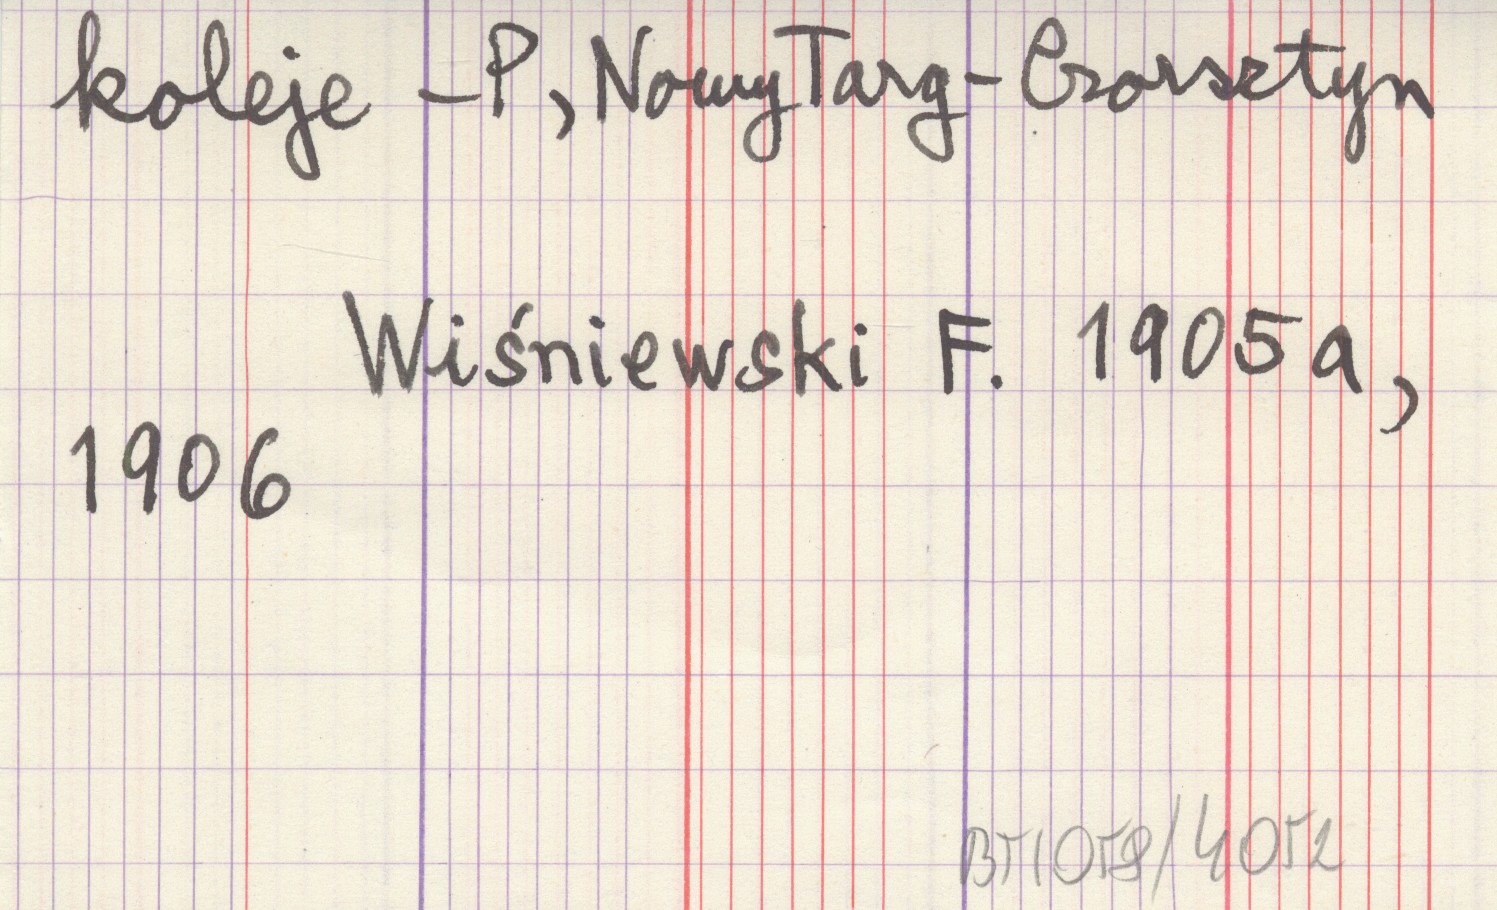 koleje – P, Nowy Targ - Czorsztyn
Wiśniewski F. 1905a,
1906
BT1058/4052